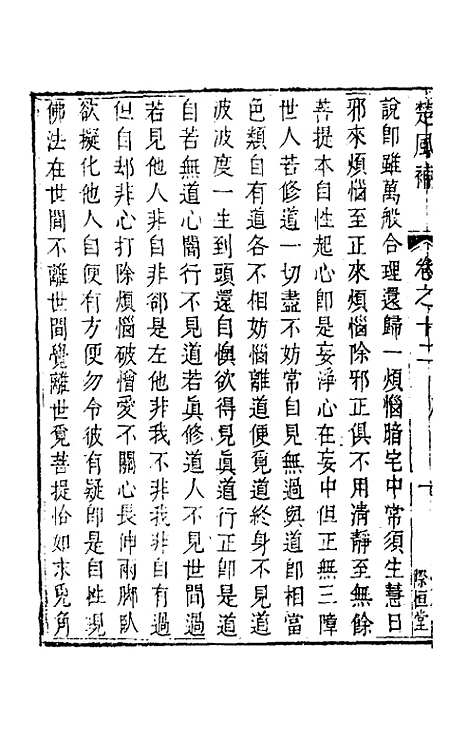 楚風補 卷之十二 十 際恒堂
說即雖萬般合理還歸一煩惱暗宅中常須生慧日
邪來煩惱至正來煩惱除邪正俱不用清靜至無餘
菩提本自性起心即是妄淨心在妄中但正無三障
世人若修道一切盡不妨常自見無過與道即相當
色類自有道各不相妨惱離道便覓道終身不見道
波波度一生到頭還自懊欲得見真道行正即是道
自若無道心闇行不見道若真修道人不見世間過
若見他人非自非卻是左他非我不非我非自有過
但自却非心打除煩惱破憎愛不關心長伸兩脚臥
欲擬化他人自便有方便勿令彼有疑即是自性現
佛法在世間不離世間覺離世覓菩提恰如求兎角